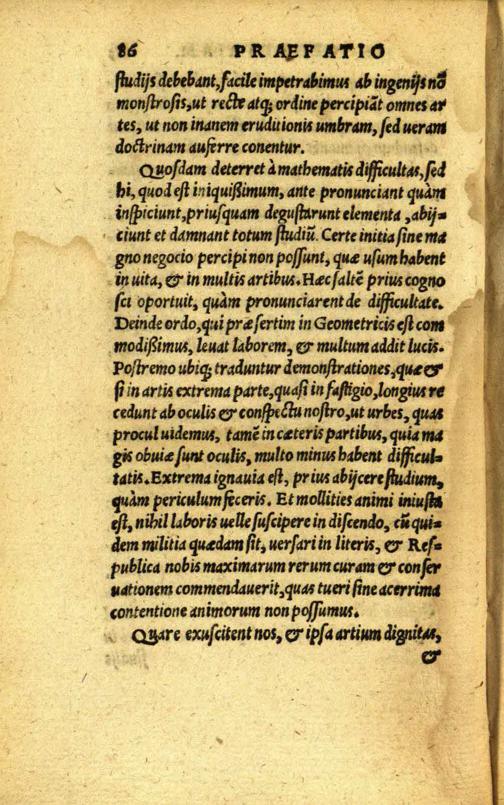 86 PRAEFATIO
studijs debebant, facile impetrabimus ab ingenijs nõ
monstrosis, ut recte atq; ordine percipiãt omnes ar
tes, ut non inanem eruditionis umbram, sed ueram
doctrinam auferre conentur.
Quosdam deterret à mathematis difficultas, sed
hi, quod est iniquißimum, ante pronunciant quàm
inspiciunt, priusquam degustarunt elementa, abij-
ciunt et damnant totum studiũ. Certe initia sine ma
gno negocio percipi non possunt, quæ usum habent
in uita, & in multis artibus. Hæc saltẽ prius cogno
sci oportuit, quàm pronunciarent de difficultate.
Deinde ordo, qui præsertim in Geometricis est com
modißimus, leuat laborem, & multum addit lucis.
Postremo ubiq; traduntur demonstrationes, quæ &
si in artis extrema parte, quasi in fastigio, longius re
cedunt ab oculis & conspectu nostro, ut urbes, quas
procul uidemus, tamẽ in cæteris partibus, quia ma
gis obuiæ sunt oculis, multo minus habent difficul-
tatis. Extrema ignauia est, prius abijcere studium,
quàm periculum feceris. Et mollities animi iniusta
est, nihil laboris uelle suscipere in discendo, cũ qui-
dem militia quædam sit, uersari in literis, & Res-
publica nobis maximarum rerum curam & conser
uationem commendauerit, quas tueri sine acerrima
contentione animorum non possumus.
Quare exuscitent nos, & ipsa artium dignitas,
&